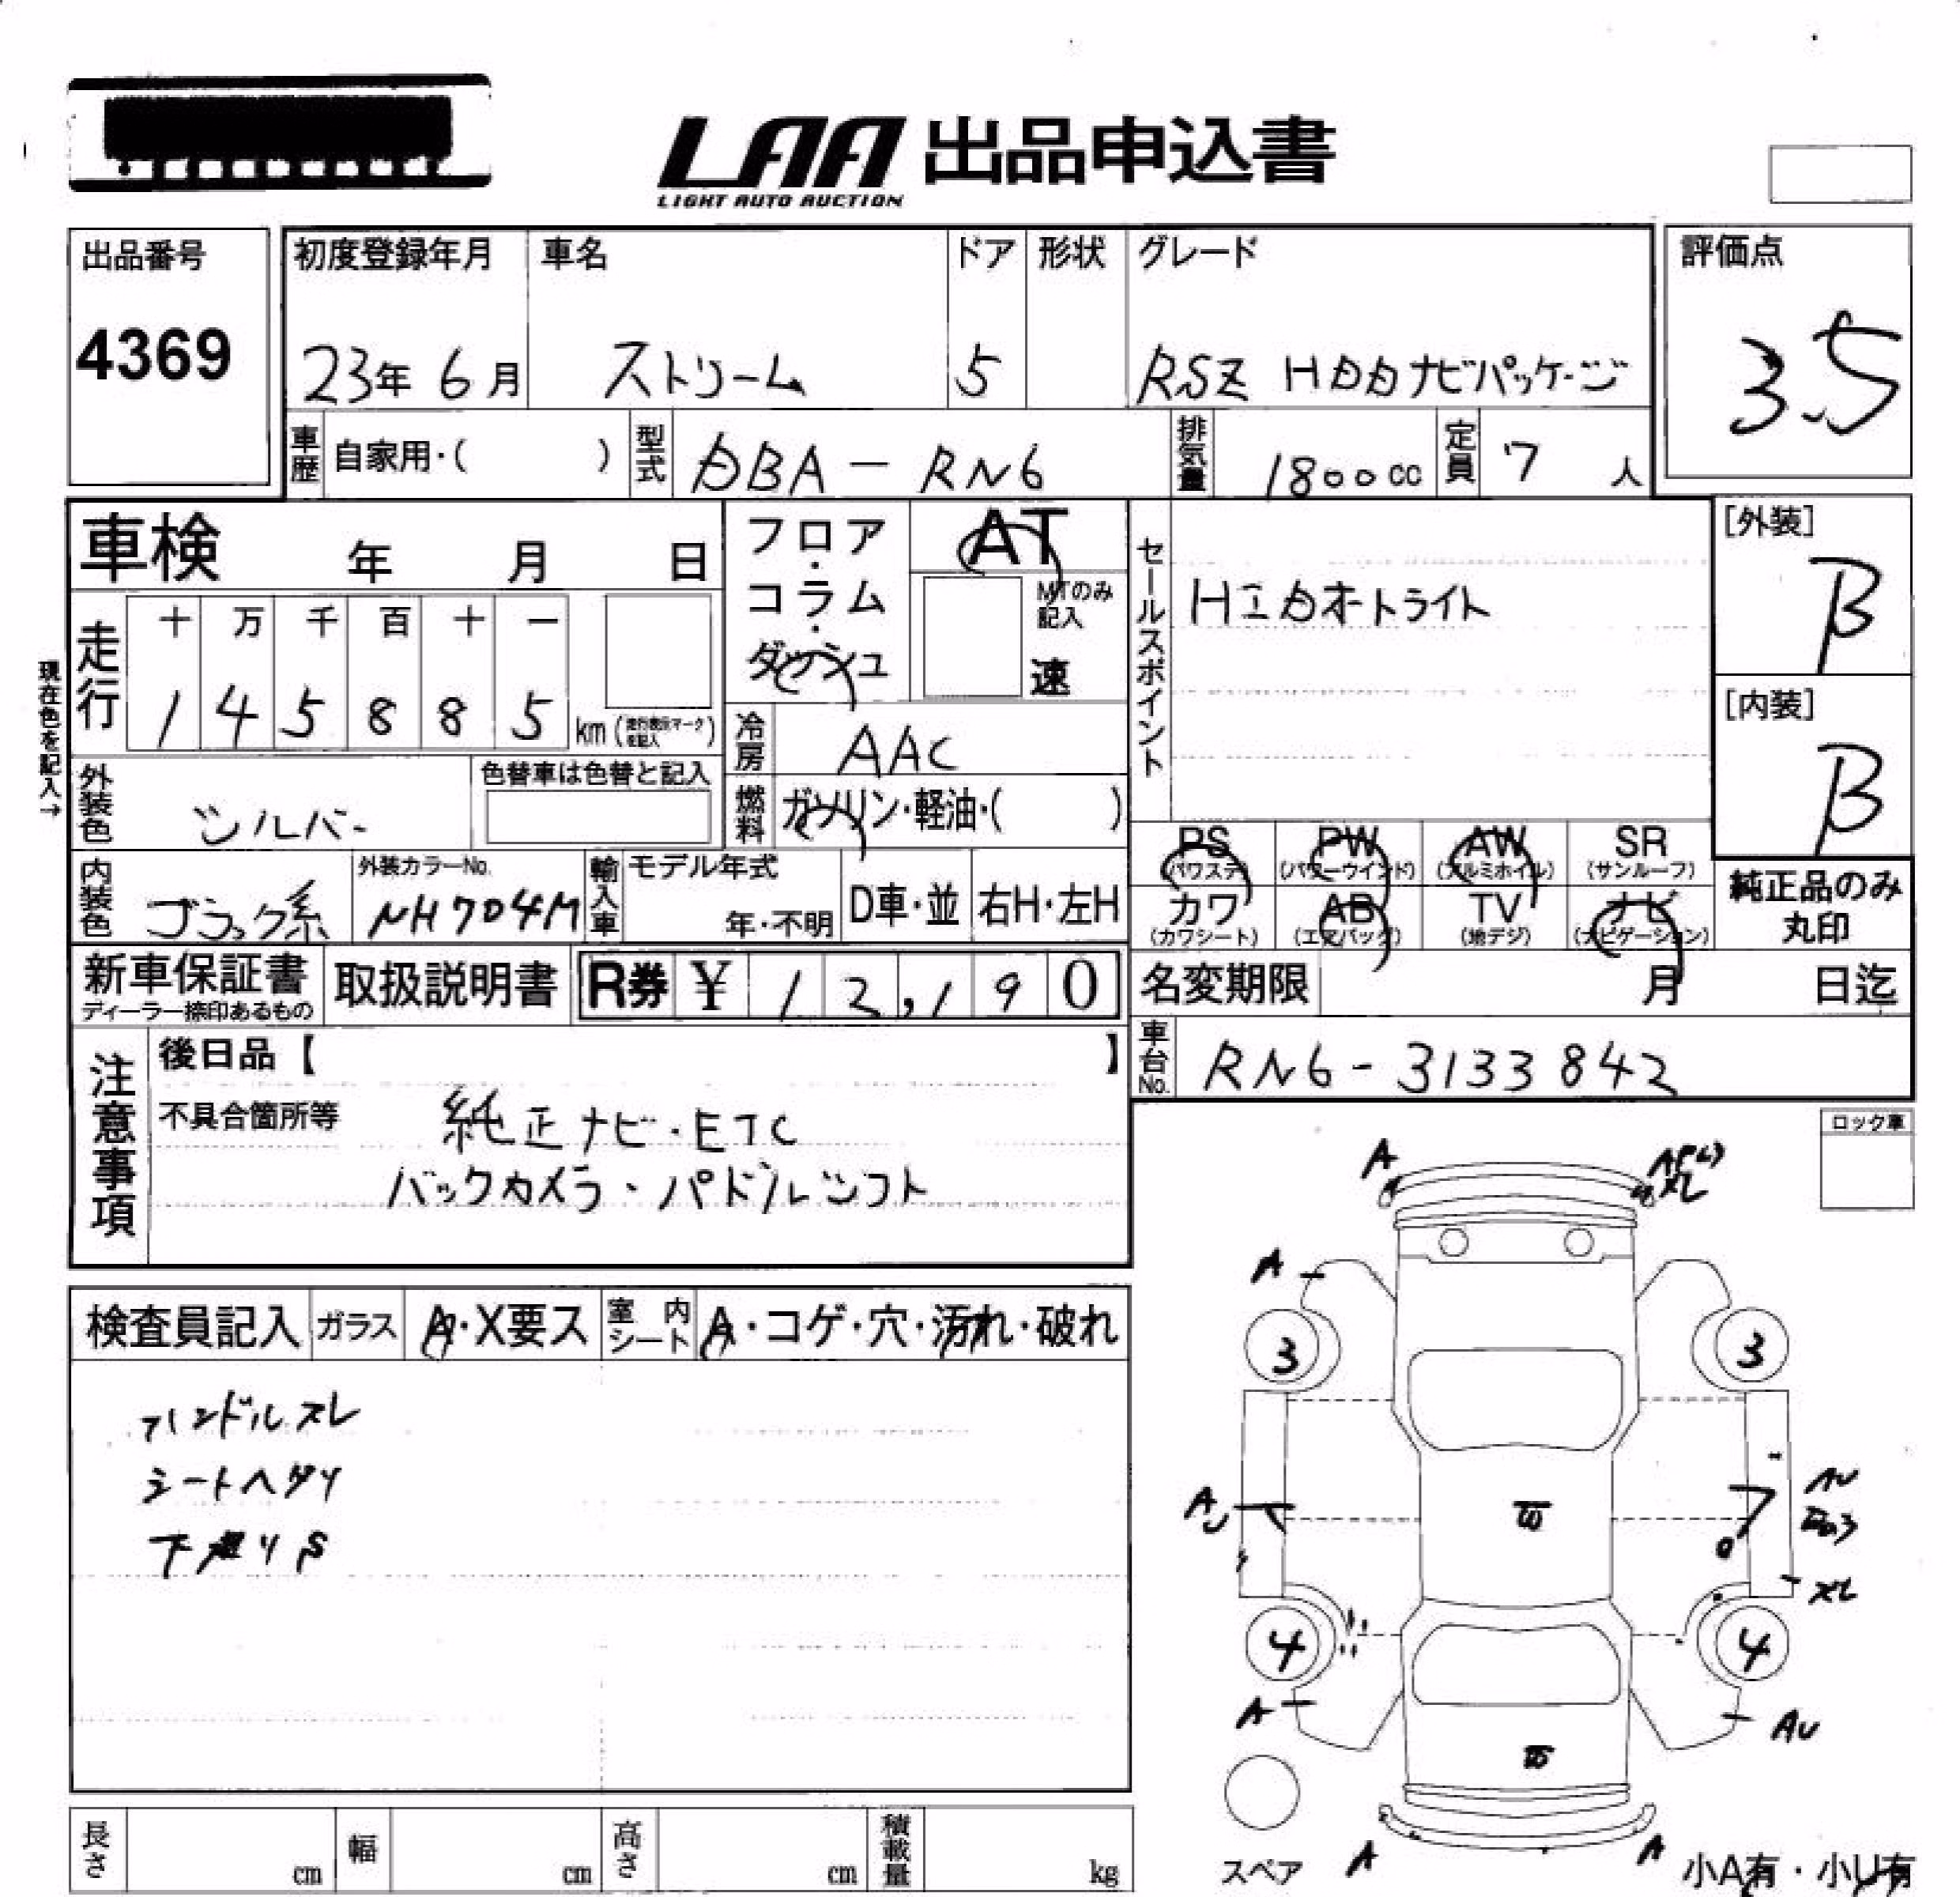 LAA 出品申込書
LIGHT AUTO AUCTION
出品番号
4369
初度登録年月 車名 ドア 形状 グレード
23年 6月 ストリーム 5 RSZ HDDナビパッケージ
評価点
3.5
車歴 自家用・( ) 型式 DBA-RN6 排気量 1800cc 定員 7人
車検 年 月 日
フロア・コラム・ダッシュ
AT
MTのみ記入
速
セールスポイント
HIDオートライト
[外装]
B
[内装]
B
現在色を記入→
走行
十 万 千 百 十 一
1 4 5 8 8 5 km(走行表示マークを記入)
冷房 AAC
外装色 シルバー
色替車は色替と記入
燃料 ガソリン・軽油・( )
PS PW AW SR
(パワステ) (パワーウインド) (アルミホイル) (サンルーフ)
カワ AB TV ナビ
(カワシート) (エアバッグ) (地デジ) (ナビゲーション)
純正品のみ
丸印
内装色 ブラック系
外装カラーNo.
NH704M
輸入車 モデル年式
年・不明 D車・並 右H・左H
新車保証書
ディーラー捺印あるもの
取扱説明書
R券 ¥ 12,190
名変期限 月 日迄
車台No. RN6-3133842
注意事項
後日品【 】
不具合箇所等
純正ナビ・ETC
バックカメラ・パドルシフト
ロック車
検査員記入 ガラス A・X要ス 室内シート A・コゲ・穴・汚れ・破れ
ハンドルスレ
シートヘタリ
下廻りS
A
A
スレ
A
3
3
A
U
AU
スレ
4
4
A
AU
スペア
A
A
小A有・小U有
長さ cm 幅 cm 高さ cm 積載量 kg